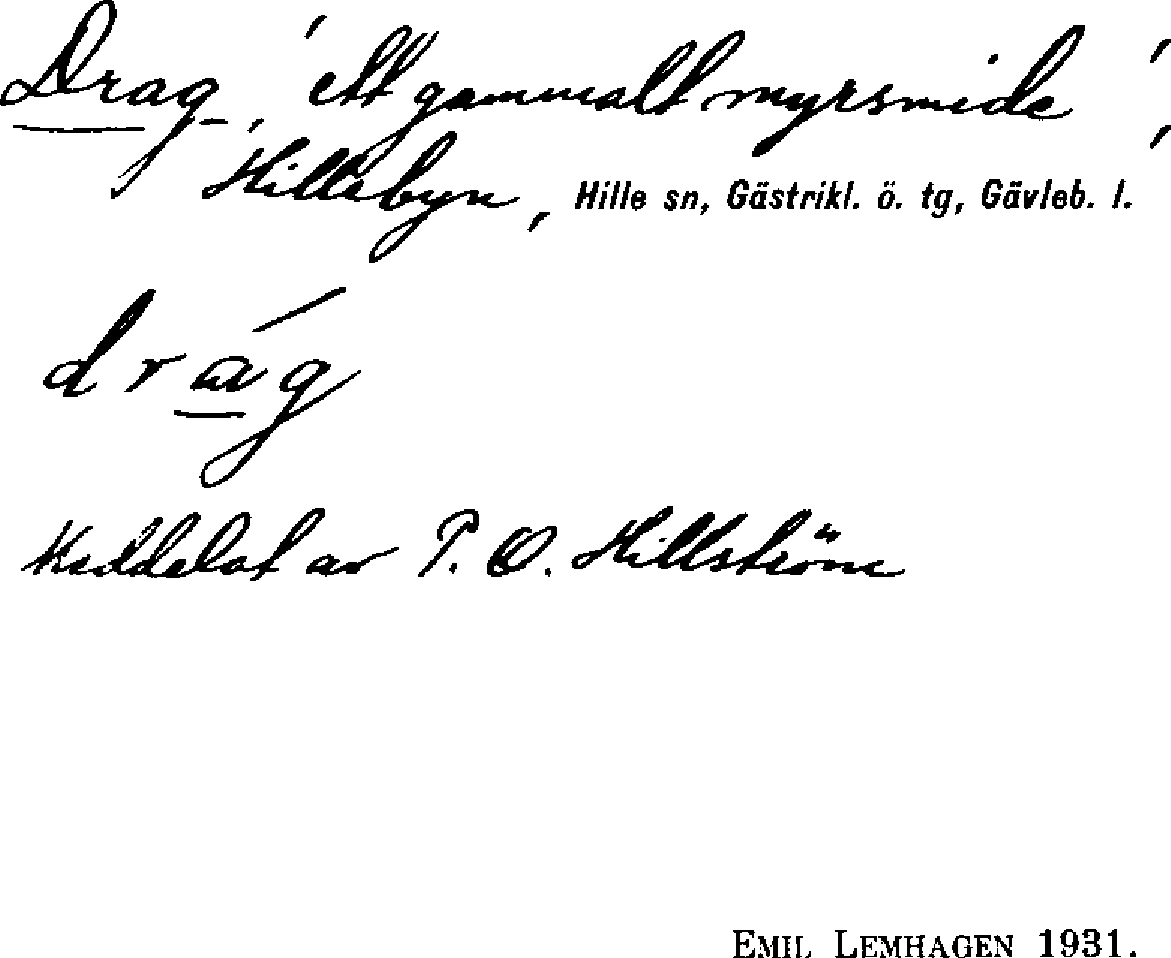 Drag, 'ett gammalt myrsmide',
Hillebyn, Hille sn, Gästrikl. ö. tg, Gävleb. l.
drág
Meddelat av P. O. Hillström
EMIL LEMHAGEN 1931.